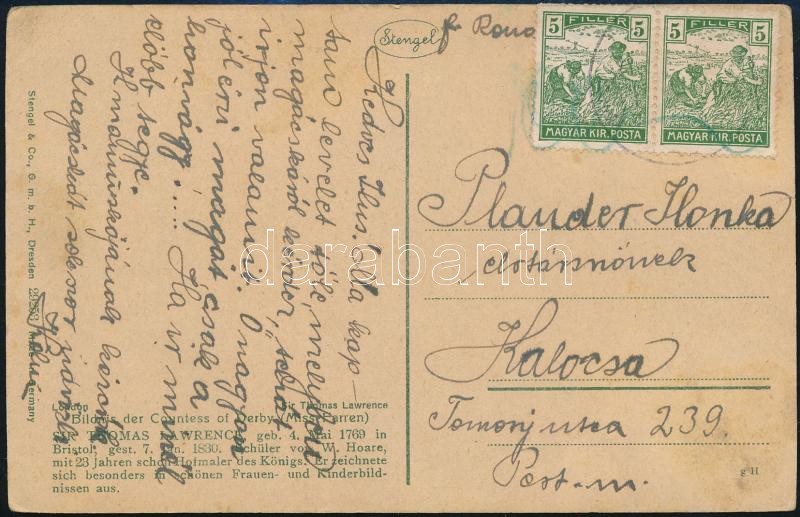 Stengel
5 FILLÉR 5
MAGYAR KIR. POSTA
5 FILLÉR 5
MAGYAR KIR. POSTA
Kedves Ilus! Ma kap-
tam levelet tőle, melyben
magácskáról kérdez,
írjon valamit. Ő nagyon
jól érzi magát csak a
honvágy .... Ha ír minél
előbb tegye.
Magácskát sokszor
Plander Ilonka
Kalocsa
Tomori utca 239.
Pest-m.
London Sir Thomas Lawrence
Bildnis der Countess of Derby (Miss Farren)
SIR THOMAS LAWRENCE, geb. 4. Mai 1769 in
Bristol, gest. 7. Jan. 1830. Schüler von W. Hoare,
mit 23 Jahren schon Hofmaler des Königs. Er zeichnete
sich besonders in schönen Frauen- und Kinderbild-
nissen aus.
Stengel & Co., G. m. b. H., Dresden Made in Germany
g H
darabanth